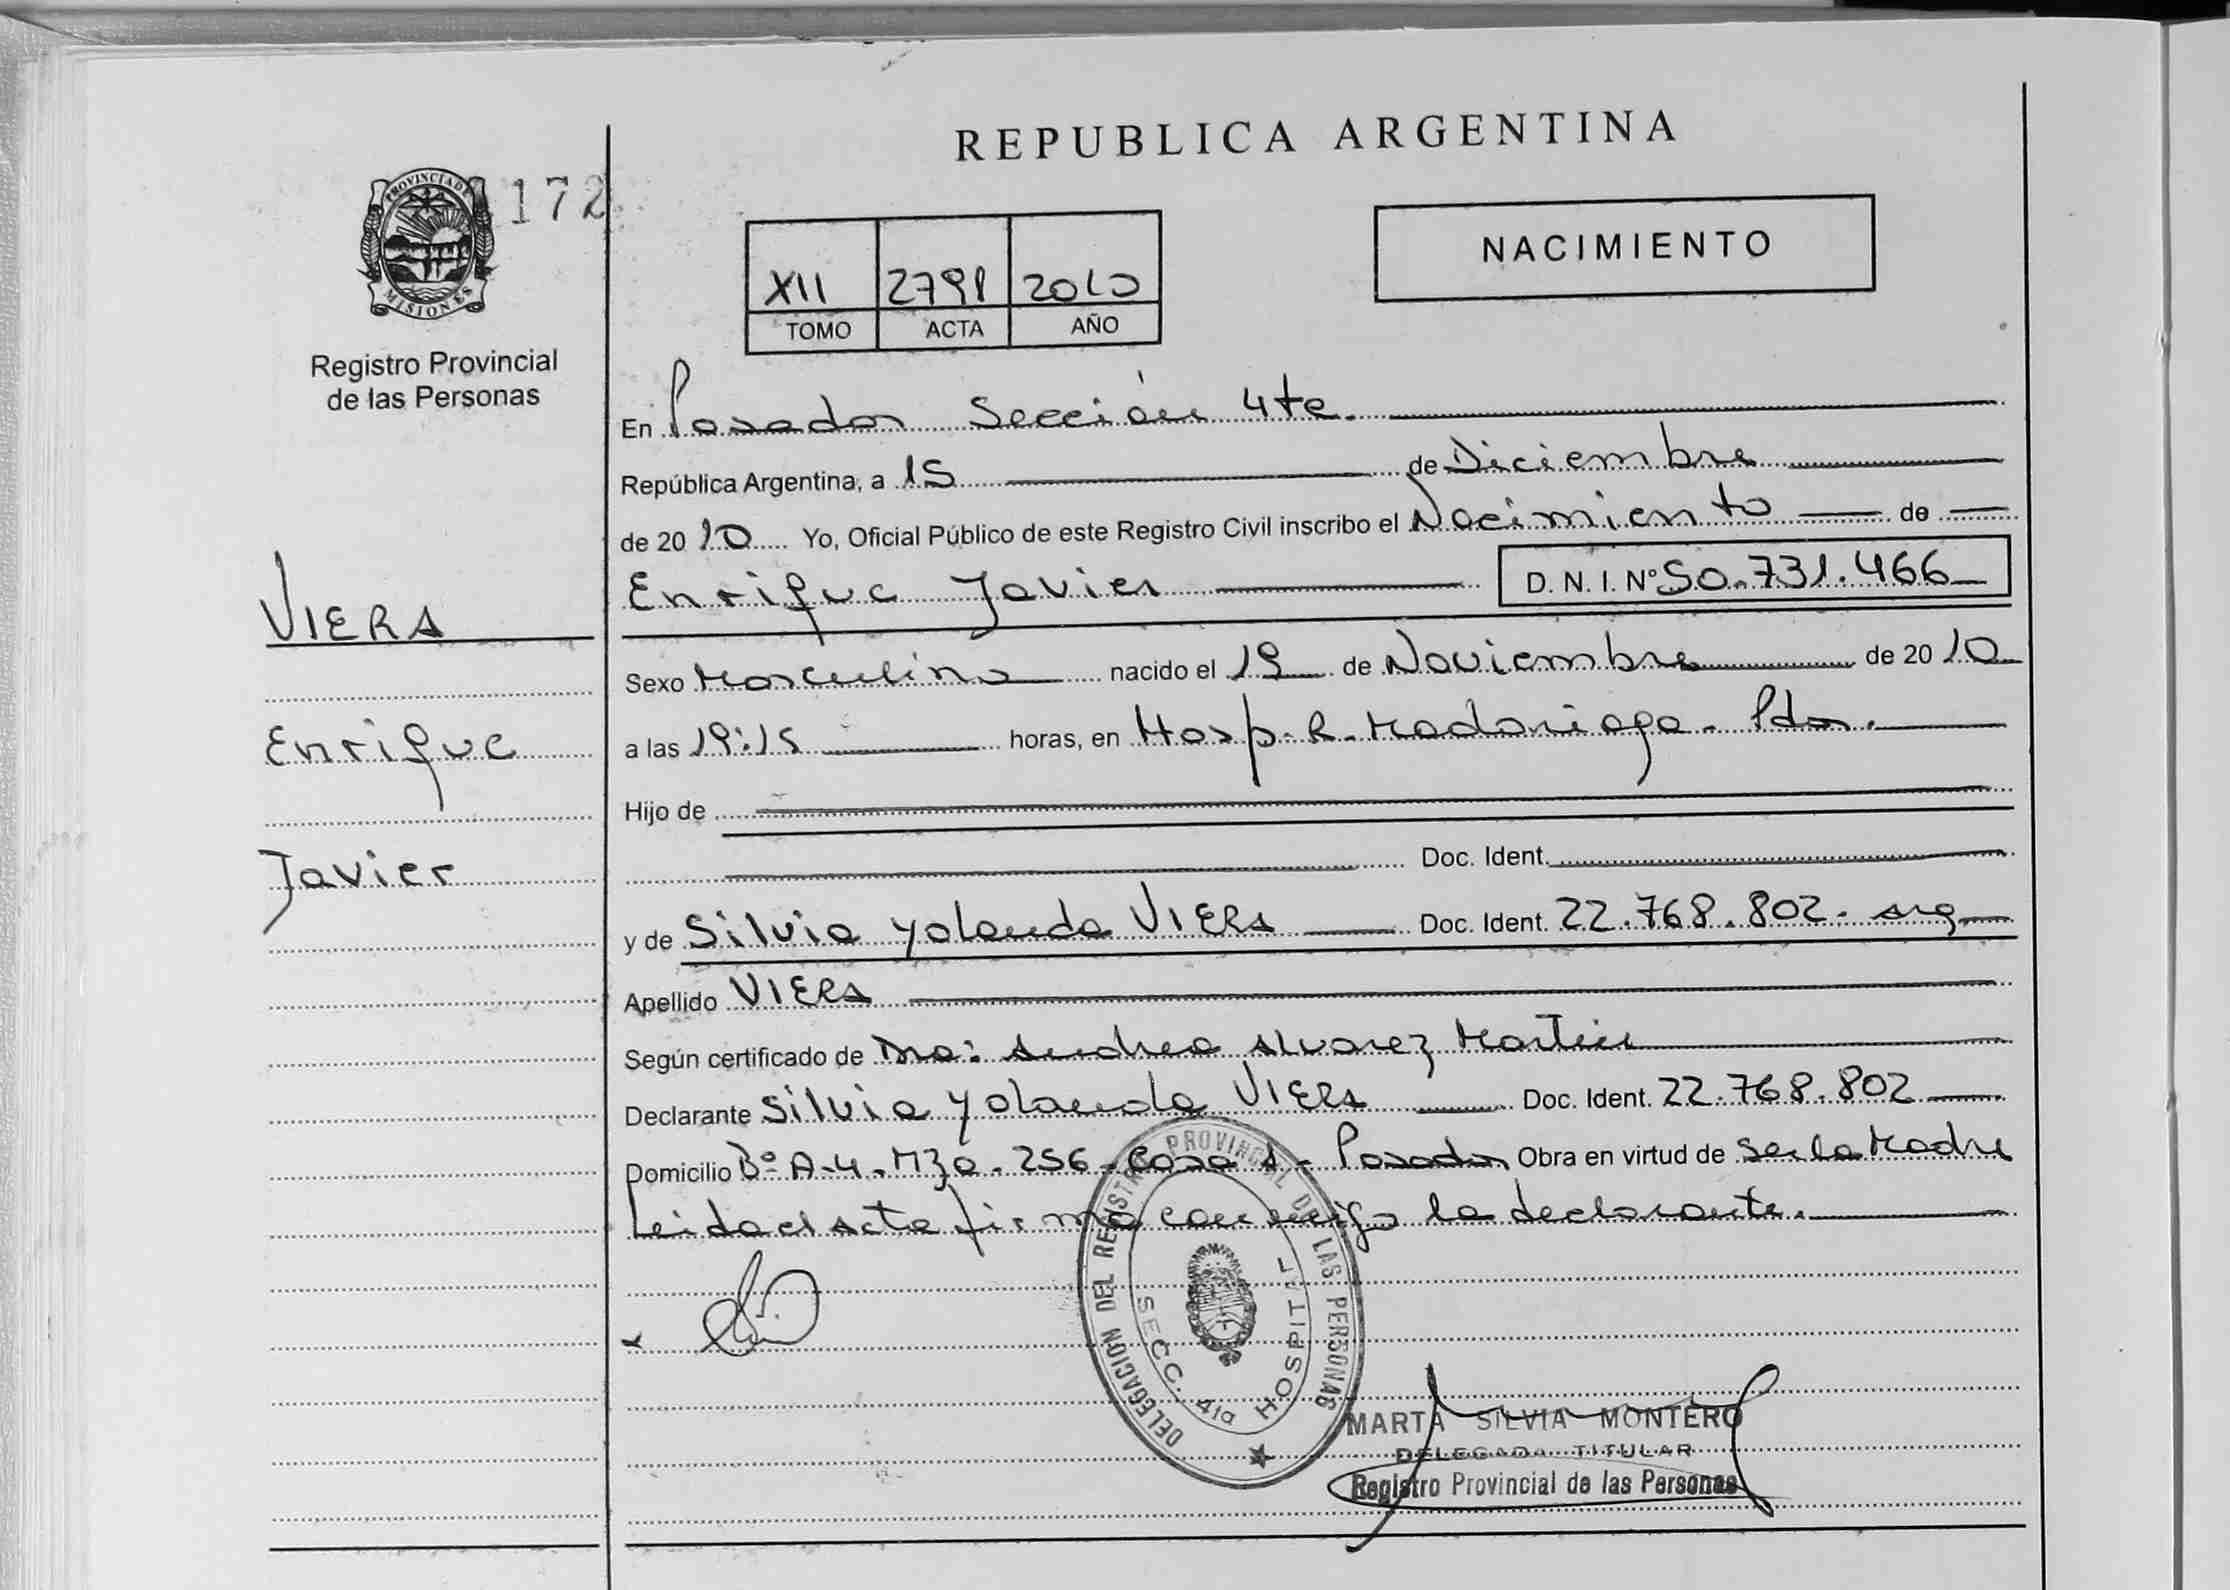 REPUBLICA ARGENTINA
PROVINCIA DE
MISIONES
172
Registro Provincial
de las Personas
XII 2791 2010
TOMO ACTA AÑO
NACIMIENTO
En Posadas Sección 4ta.
República Argentina, a 15 de Diciembre
de 2010 Yo, Oficial Público de este Registro Civil inscribo el Nacimiento de
Enrique Javier D. N. I. Nº 50.731.466
VIERA
Enrique
Javier
Sexo Masculino nacido el 19 de Noviembre de 2010
a las 19:15 horas, en Hosp. R. Madariaga - Pdas.
Hijo de
Doc. Ident.
y de Silvia Yolanda VIERA Doc. Ident. 22.768.802 - arg
Apellido VIERA
Según certificado de Dra: Andrea Alvarez Martin
Declarante Silvia Yolanda VIERA Doc. Ident. 22.768.802
Domicilio Bº A-4-Mza. 256 - Casa 1 - Posadas Obra en virtud de ser la Madre
Leida el acta firma conmigo la declarante.
DELEGACION DEL REGISTRO PROVINCIAL DE LAS PERSONAS
SECC. 41a HOSPITAL
MARTA SILVIA MONTERO
DELEGADA TITULAR
Registro Provincial de las Personas